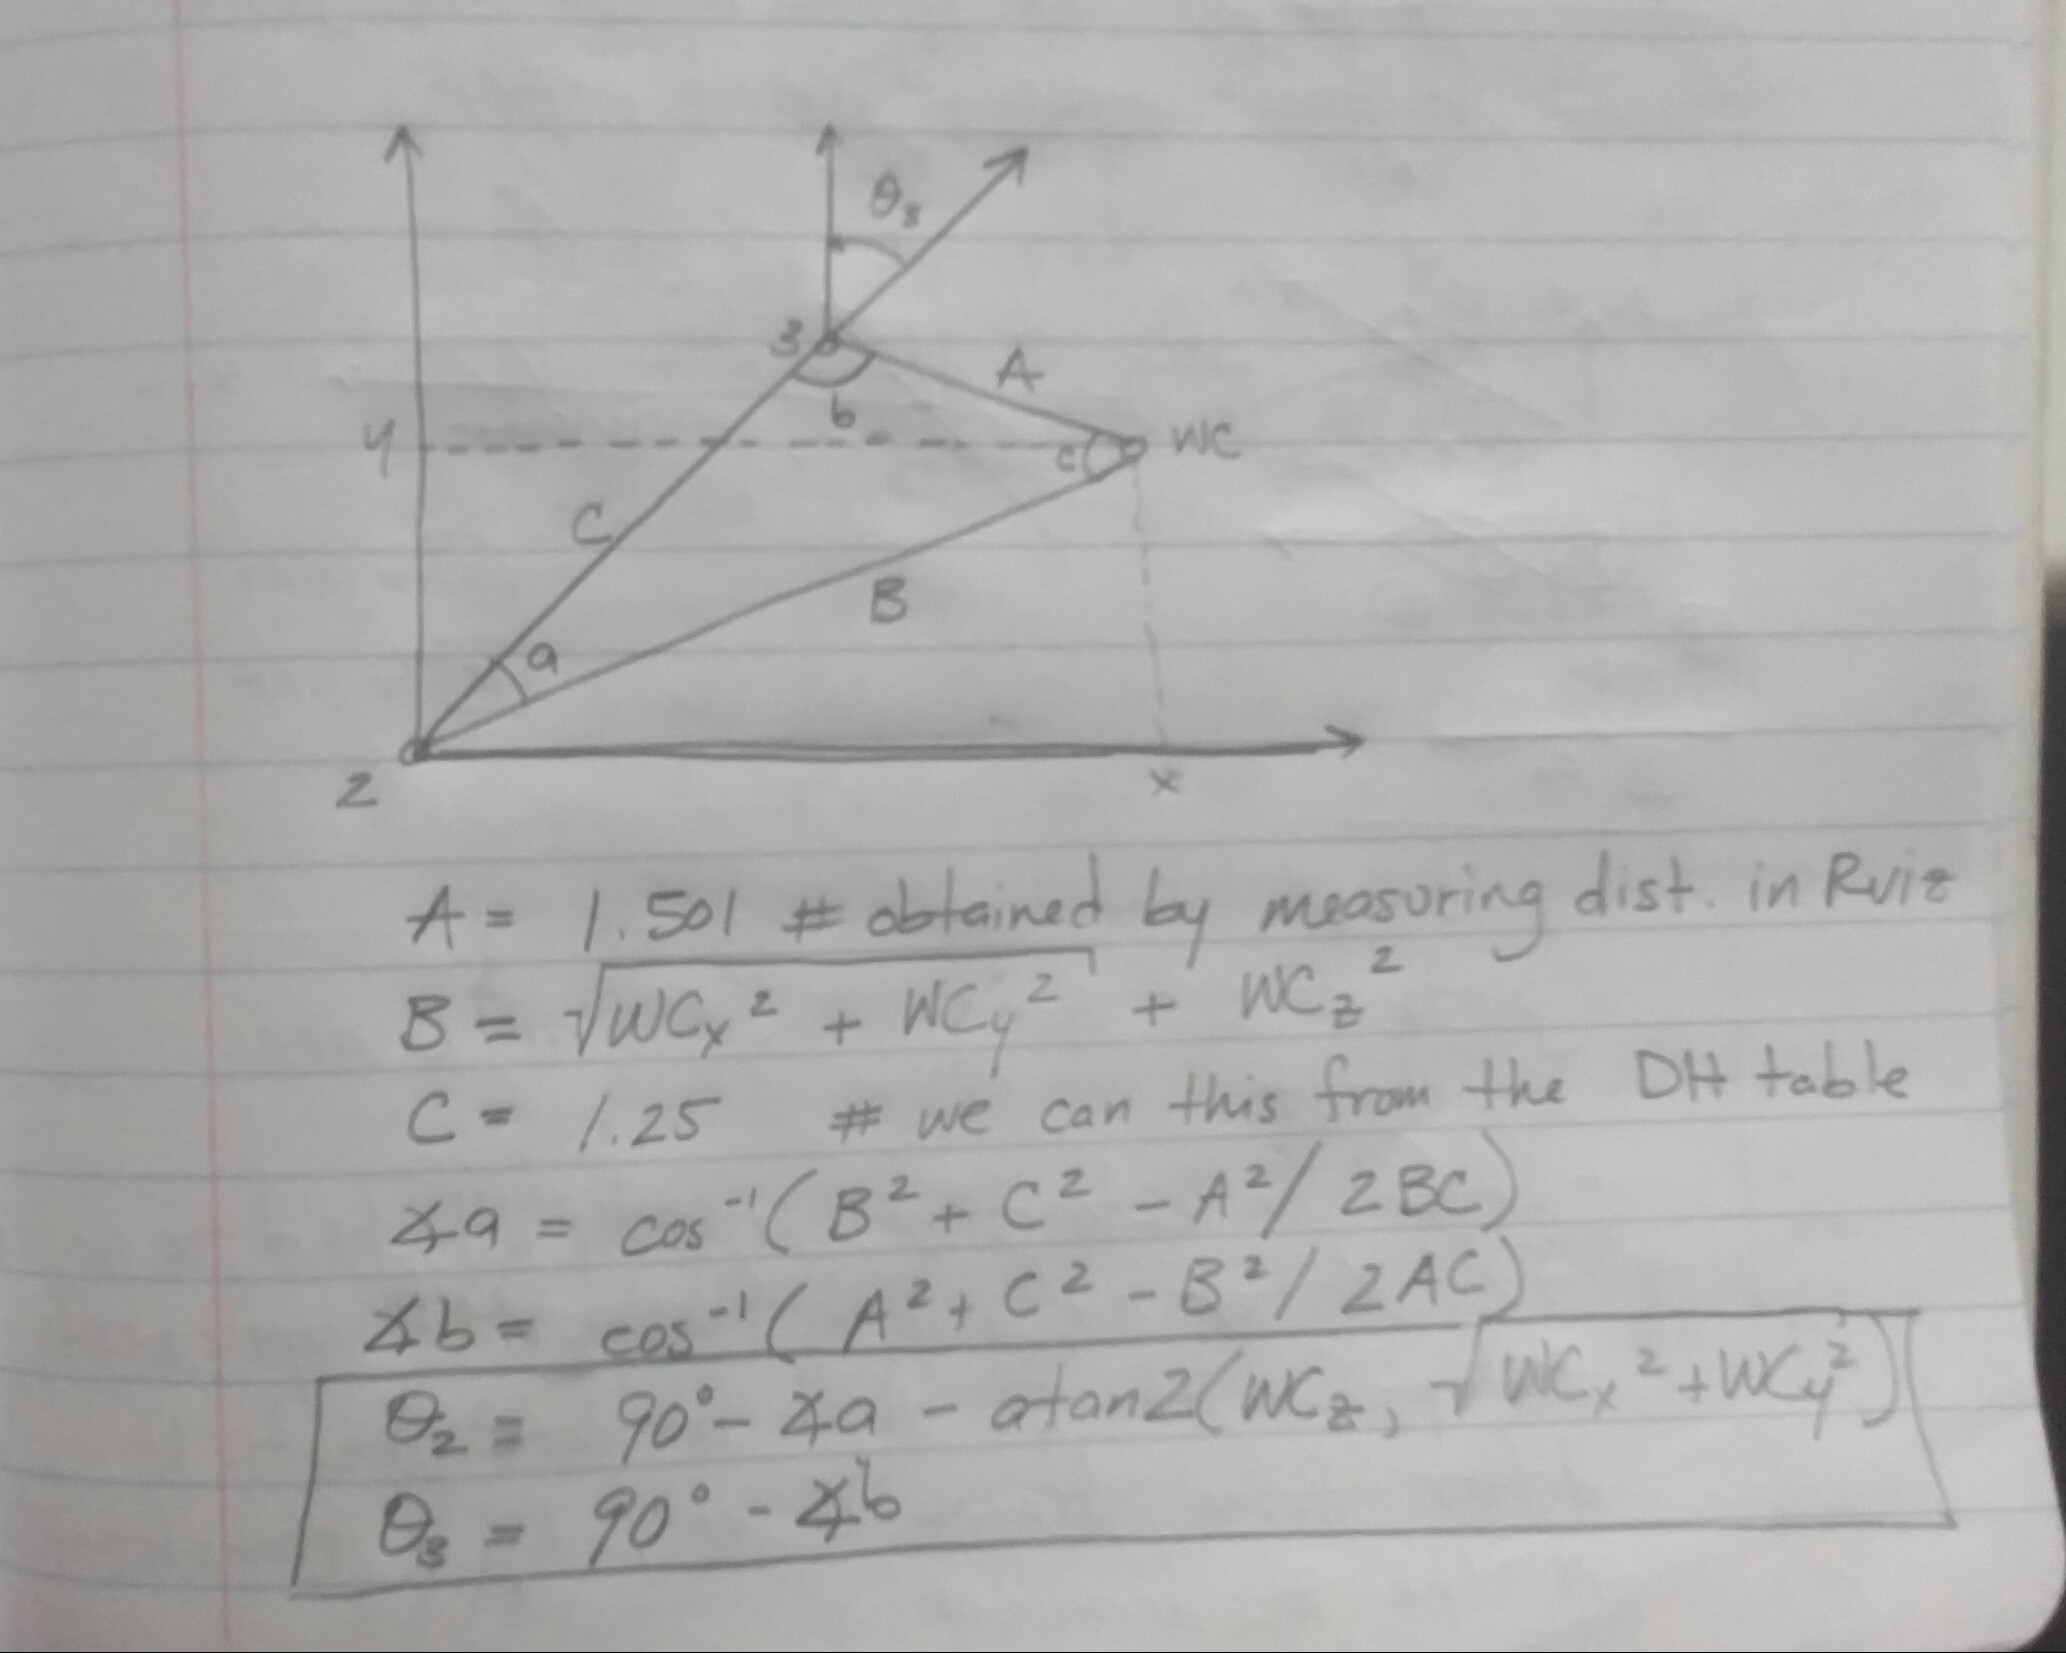 θ₃
3
A
b
y
c
WC
C
B
a
2
x
A = 1.501 # obtained by measuring dist. in Rviz
B = √(WCx² + WCy²) + WCz²
C = 1.25 # we can this from the DH table
∡a = cos⁻¹( B² + C² - A² / 2BC)
∡b = cos⁻¹( A² + C² - B² / 2AC)
θ₂ = 90° - ∡a - atan2(WCz, √(WCx² + WCy²))
θ₃ = 90° - ∡b